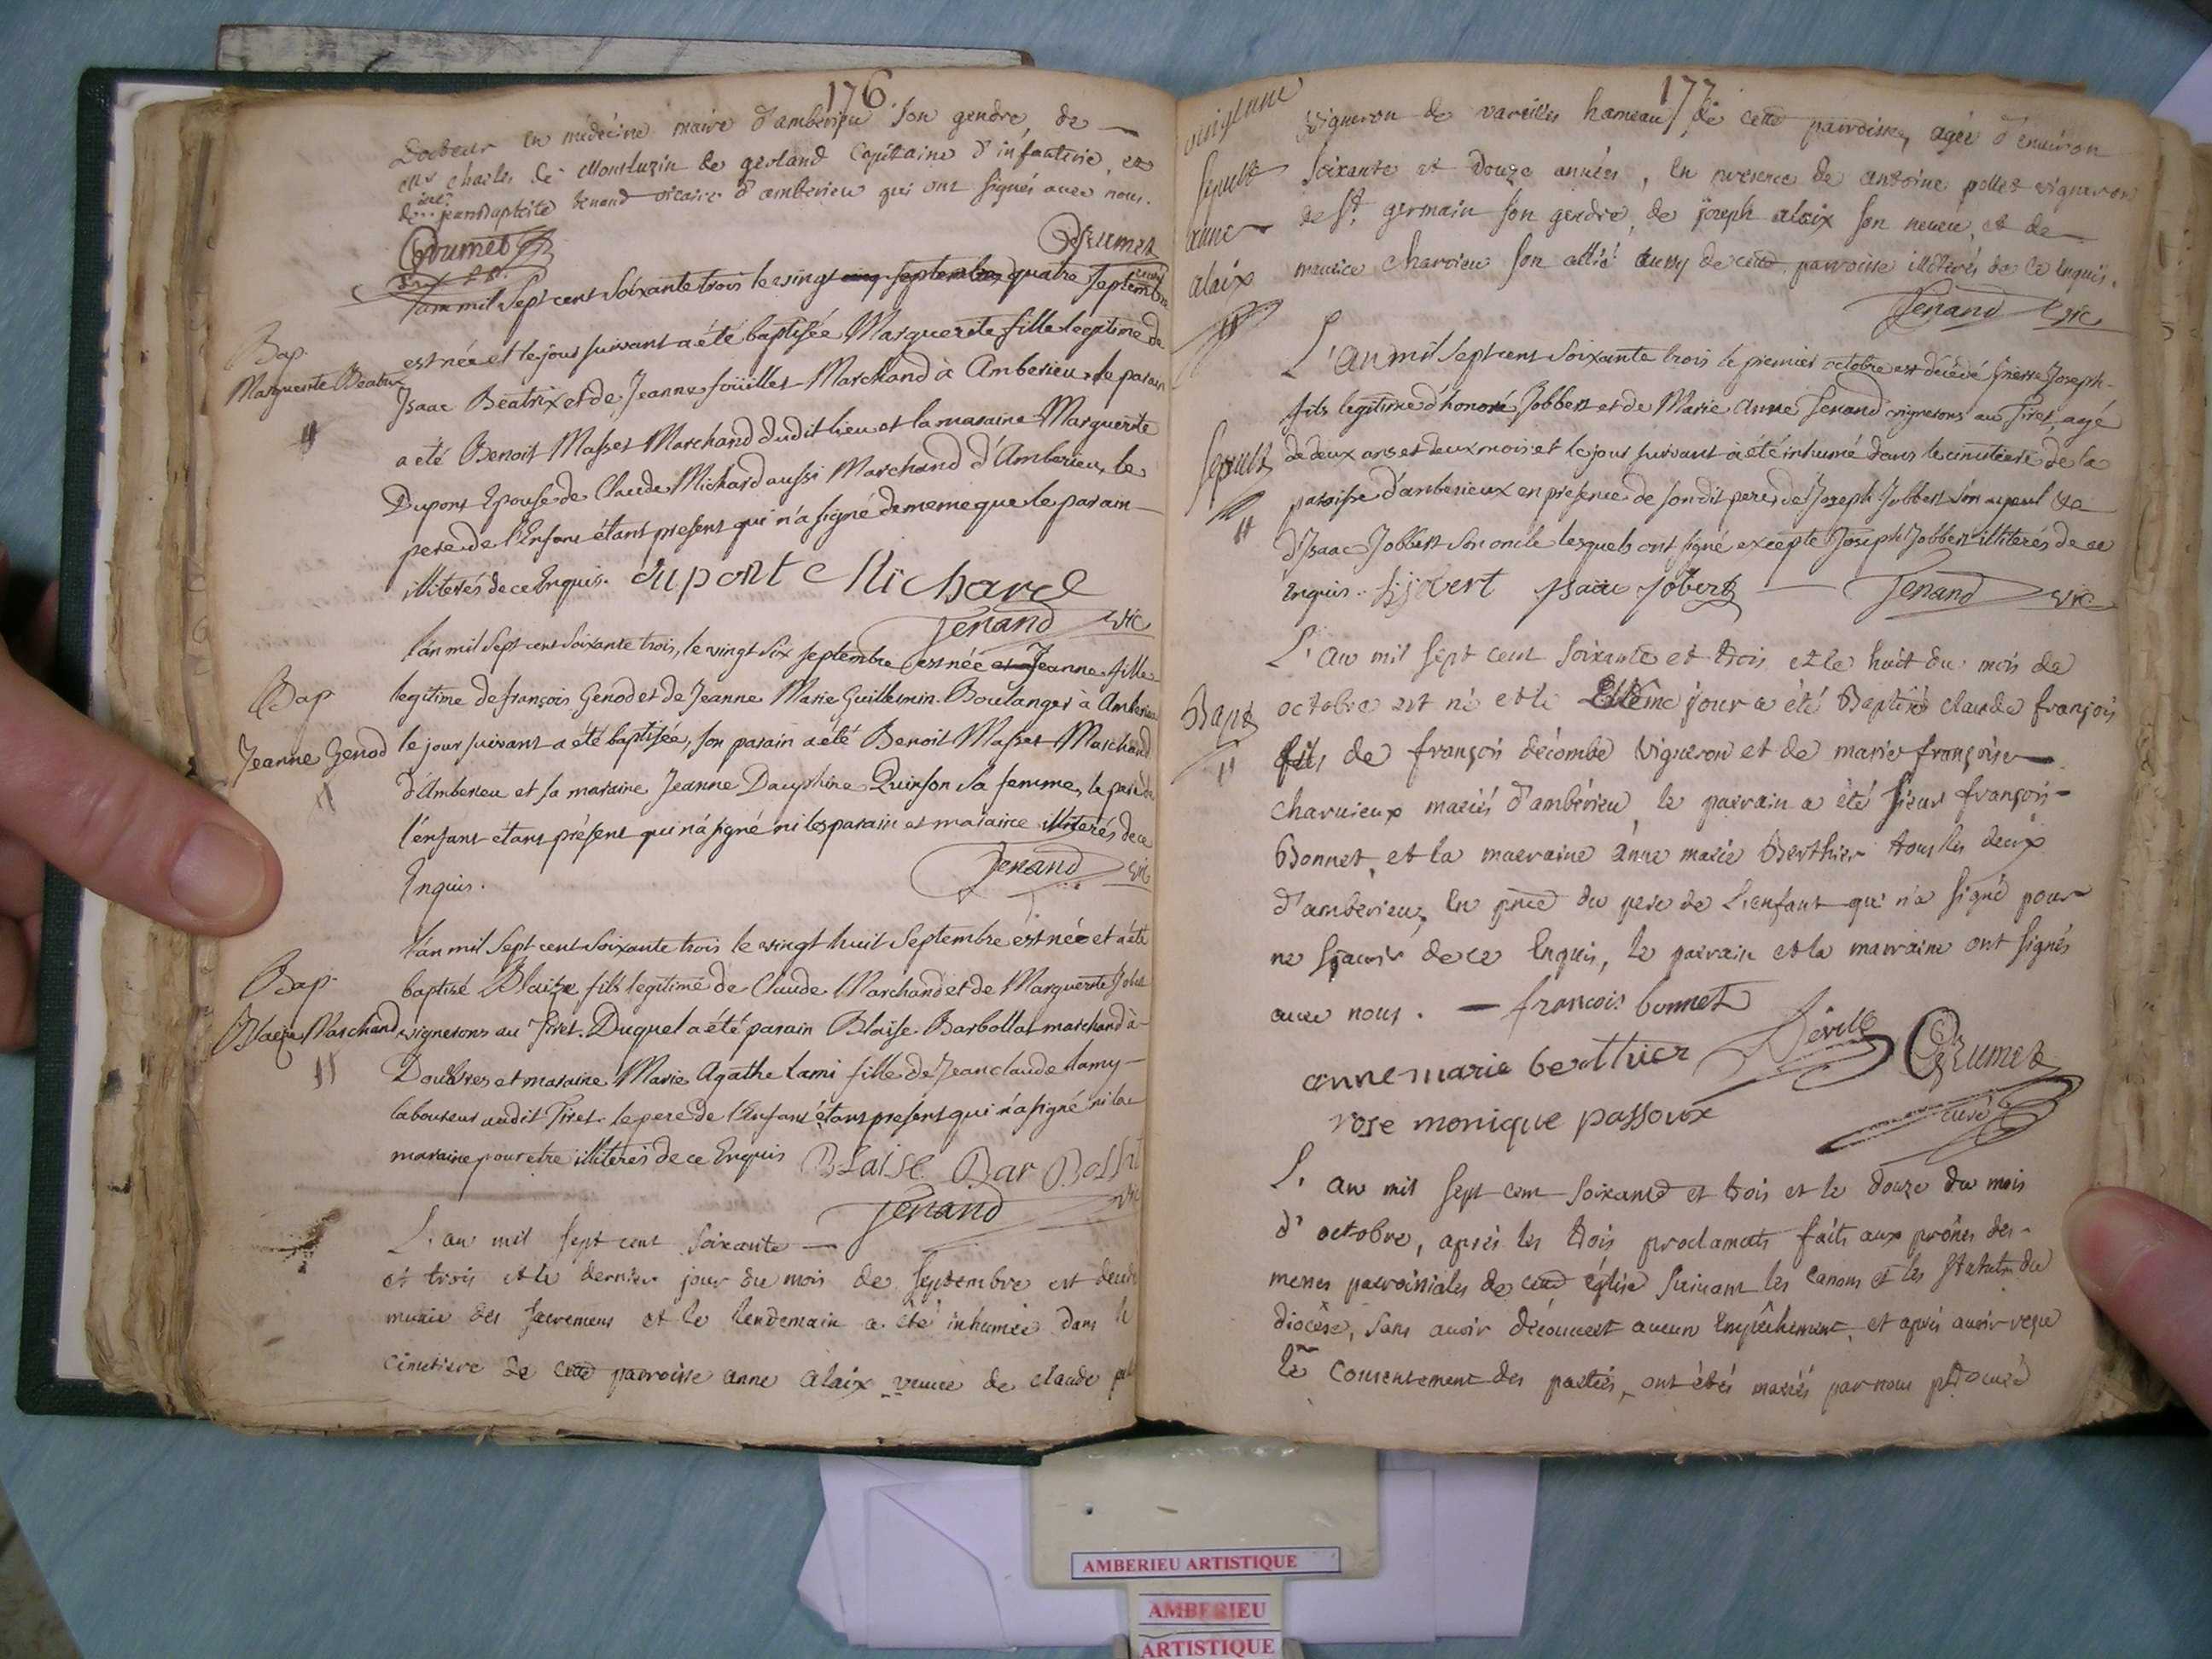 176
Docteur en médecine maire d'ambérieu son gendre, de
mr charles de Montluzin de gerland Capitaine d'infanterie, et
de jean Baptiste tenand vicaire d'amberieu qui ont signés avec nous.
Grumet
Grumet
curé
l'an mil Sept cent Soixante trois le vingt cinq septembre quatre Septembre
Bap.
Marguerite Beatrix
est née et le jour suivant a été baptisée Marguerite fille legitime de
Isaac Beatrix et de Jeanne foüilles Marchand à Amberieu, le parain
a été Benoit Masset Marchand dudit lieu et la maraine Marguerite
Dupont Epouse de Claude Michard aussi Marchand d'Amberieu, le
pere de l'Enfant étant present qui n'a signé de meme que le parain
illiterés de ce Enquis. dupont Michard
Tenand vic
l'an mil Sept cent Soixante trois, le vingt Six septembre est née et Jeanne fille
Bap
Jeanne Genod
legitime de françois Genod et de Jeanne Marie Guillermin Boulanger à Amberieu
le jour suivant a été baptisée, son parain a été Benoit Masset Marchand
d'Amberieu et sa maraine Jeanne Dauphine Quinson sa femme, le pere de
l'enfant étant présent qui n'a signé ni les parain et maraine illiterés de ce
Enquis.
Tenand vic
l'an mil Sept cent Soixante trois le vingt huit Septembre est née et a été
Bap.
Blaize Marchand
baptisé Blaize fils legitime de Claude Marchand et de Marguerite
vignerons au Tiret. Duquel a été parain Blaise Barbollat marchand à
Douvres et maraine Marie Agathe Lami fille de Jean claude Lamy
laboureur audit Tiret. le pere de l'Enfant étant present qui n'a signé ni la
maraine pour etre illiterés de ce Enquis BLaise Bar Bollat
Tenand vic
L'an mil sept cent soixante
et trois et le dernier jour du mois de septembre est decede
munie des sacremens et le lendemain a été inhumée dans le
cimetiere de cette parroisse anne alaix veuve de claude
177
vigneron de vareilles hameau de cette parroisse, agée d'environ
Sepult
anne
alaix
soixante et Douze années, en presence de antoine pollet vigneron
de St germain son gendre, de joseph alaix son neveu, et de
maurice charvieu son allié aussy de cette parroisse illiterés de ce enquis.
Tenand vic
L'an mil Sept cent Soixante trois le premier octobre est décédé Pierre Joseph
Sepult
fils legitime d'honoré Jobbert et de Marie Anne Tenand vignerons au Tiret, agé
de deux ans et deux mois et le jour suivant a été inhumé dans le cimetiere de la
paroisse d'amberieux en presence de son dit pere, de Joseph Jobbert son ayeul et de
d'Isaac Jobbert son oncle lesquels ont signé excepté Joseph Jobbert illiterés de ce
Enquis. h jobert isaac jobert Tenand vic
L'an mil sept cent soixante et trois et le huit du mois de
Bapt
octobre est né et le même jour a été Baptisé claude françois
fils de françois décombe vigneron et de marie françoise
charvieux mariés d'ambérieu, le parrain a été sieur françois
Bonnet, et la marraine anne marie Berthier tous les deux
d'amberieu, en pnce du pere de L'enfant qui n'a signé pour
ne sçavoir de ce Enquis, le parrain et la marraine ont signés
avec nous. francois bonnet
anne marie berthier Grumet
rose monique passoux curé
L'an mil sept cent soixante et trois et le douze du mois
d'octobre, après les trois proclamats faits aux prônes des
messes parroissiales de cette église suivant les canons et les statuts du
diocèse, sans avoir découvert aucun Empêchement, et après avoir reçu
le Consentement des parties, ont étés mariés par nous ptre curé
AMBERIEU ARTISTIQUE
AMBERIEU
ARTISTIQUE